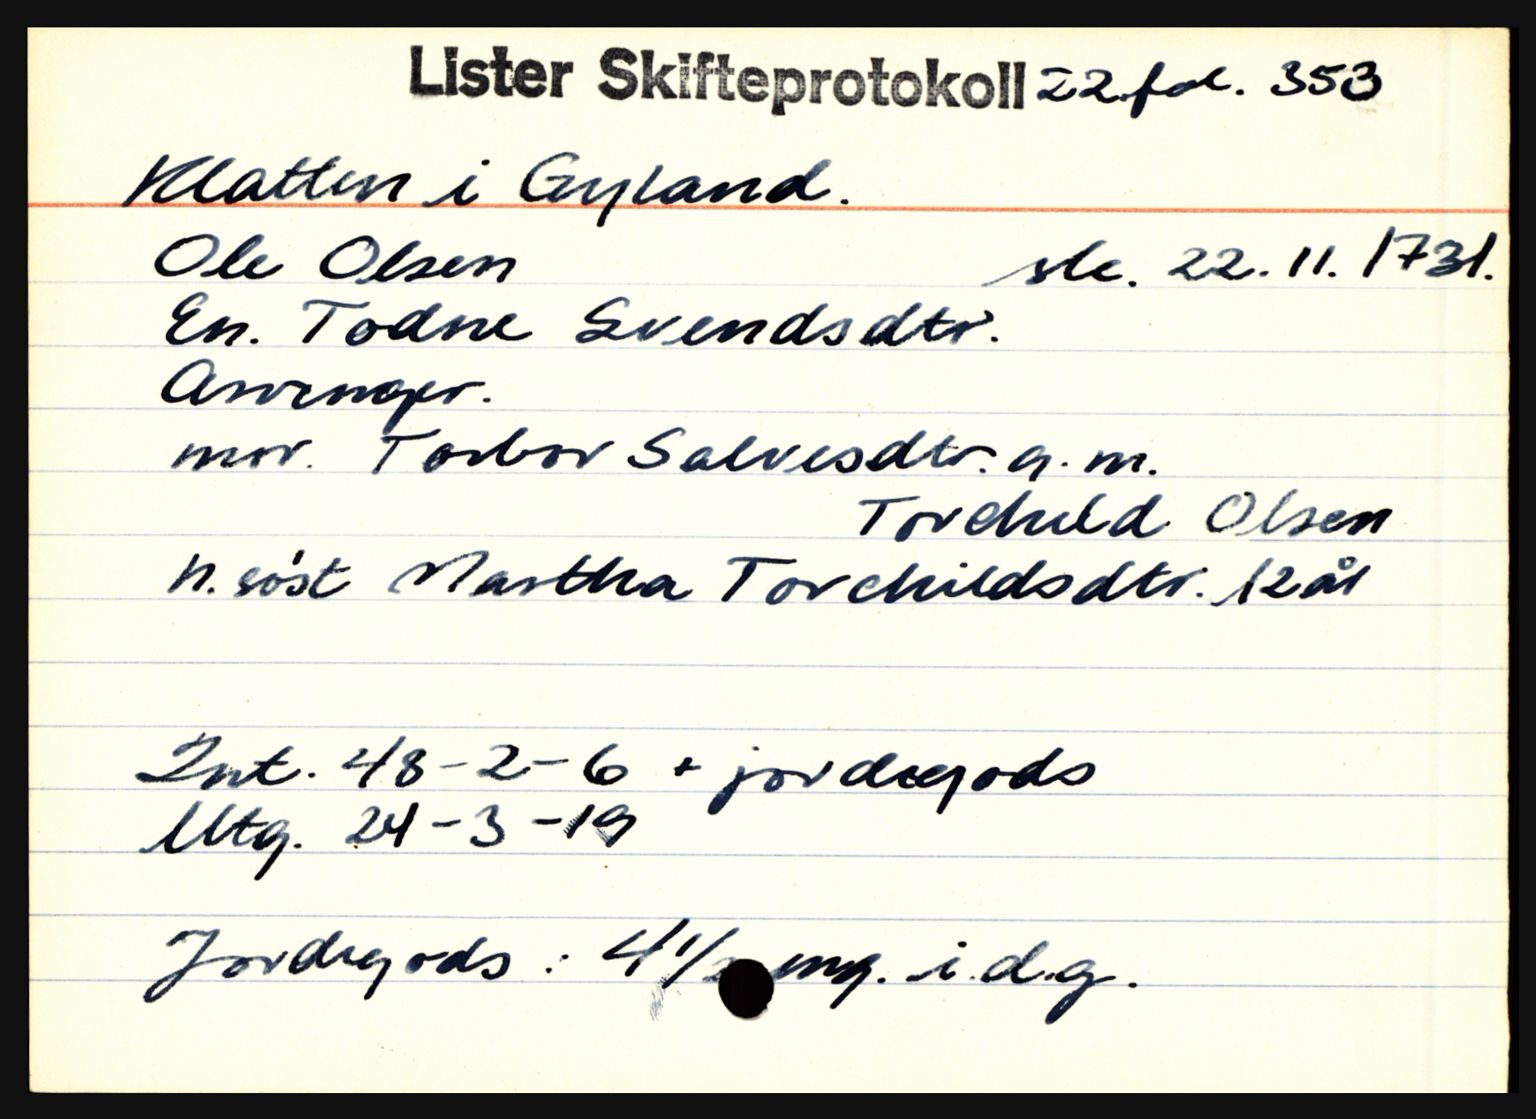 Lister Skifteprotokoll 22. fol. 353
Klatten i Gyland.
Ole Olsen skr. 22.11.1731.
En. Todne Svendsdtr.
Arvinger.
mor. Torbor Salvesdtr. g.m.
Torchild Olsen
h. søst Martha Torchildsdtr. 12 år
Int. 48-2-6 + jordegods
Utg. 24-3-19
Jordegods: 4 1/2 eng. i.d.g.